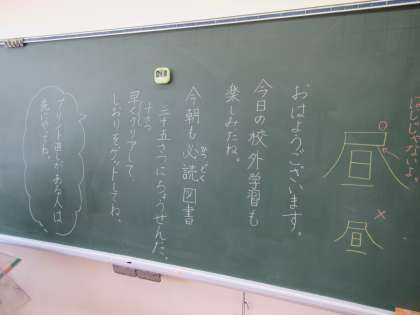 はじゃないよ。
昼
昼
おはようございます。
今日の校外学習も
楽しみだね。
今朝も必読図書
ひつどく
三十五さつにちょうせんだ。
早くクリアして
しおりをゲットしてね。
プリント直しがある人は
先にやってね。